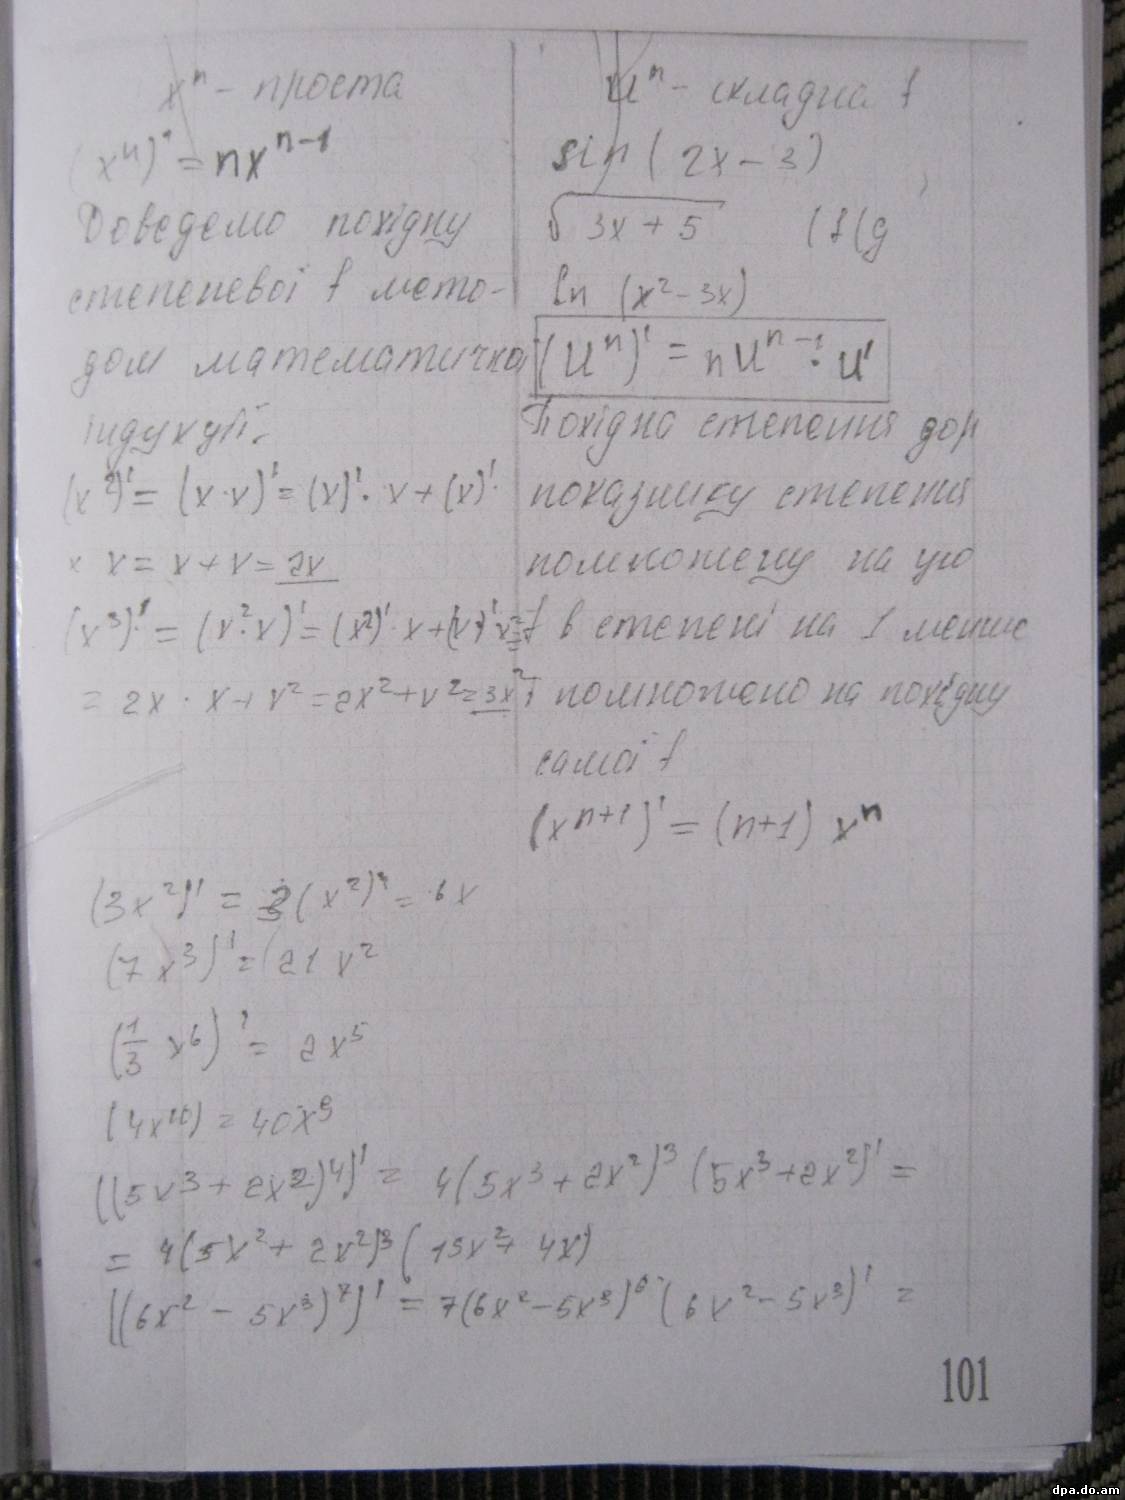 xⁿ - проста
(xⁿ)' = nxⁿ⁻¹
Доведемо похідну
степеневої f мето-
дом математичної
індукції.
(x²)' = (x·x)' = (x)'· x + (x)'·
× x = x + x = 2x
(x³)' = (x²·x)' = (x²)'· x + (x)'·x² =
= 2x · x + x² = 2x² + x² = 3x²
uⁿ - складна f
sin (2x - 3)
√3x + 5 (f(g
ln (x² - 3x)
(uⁿ)' = nuⁿ⁻¹ · u'
Похідна степення дор
показнику степення
помножену на цю
f в степені на 1 менше
і помножено на похідну
самої f
(xⁿ⁺¹)' = (n+1) xⁿ
(3x²)' = 3(x²)' = 6x
(7x³)' = 21x²
(1/3 x⁶)' = 2x⁵
(4x¹⁰) = 40x⁹
((5x³ + 2x²)⁴)' = 4(5x³ + 2x²)³ (5x³ + 2x²)' =
= 4(5x² + 2x²)³ (15x² + 4x)
((6x² - 5x³)⁷)' = 7(6x² - 5x³)⁶·(6x² - 5x³)' =
101
dpa.do.am